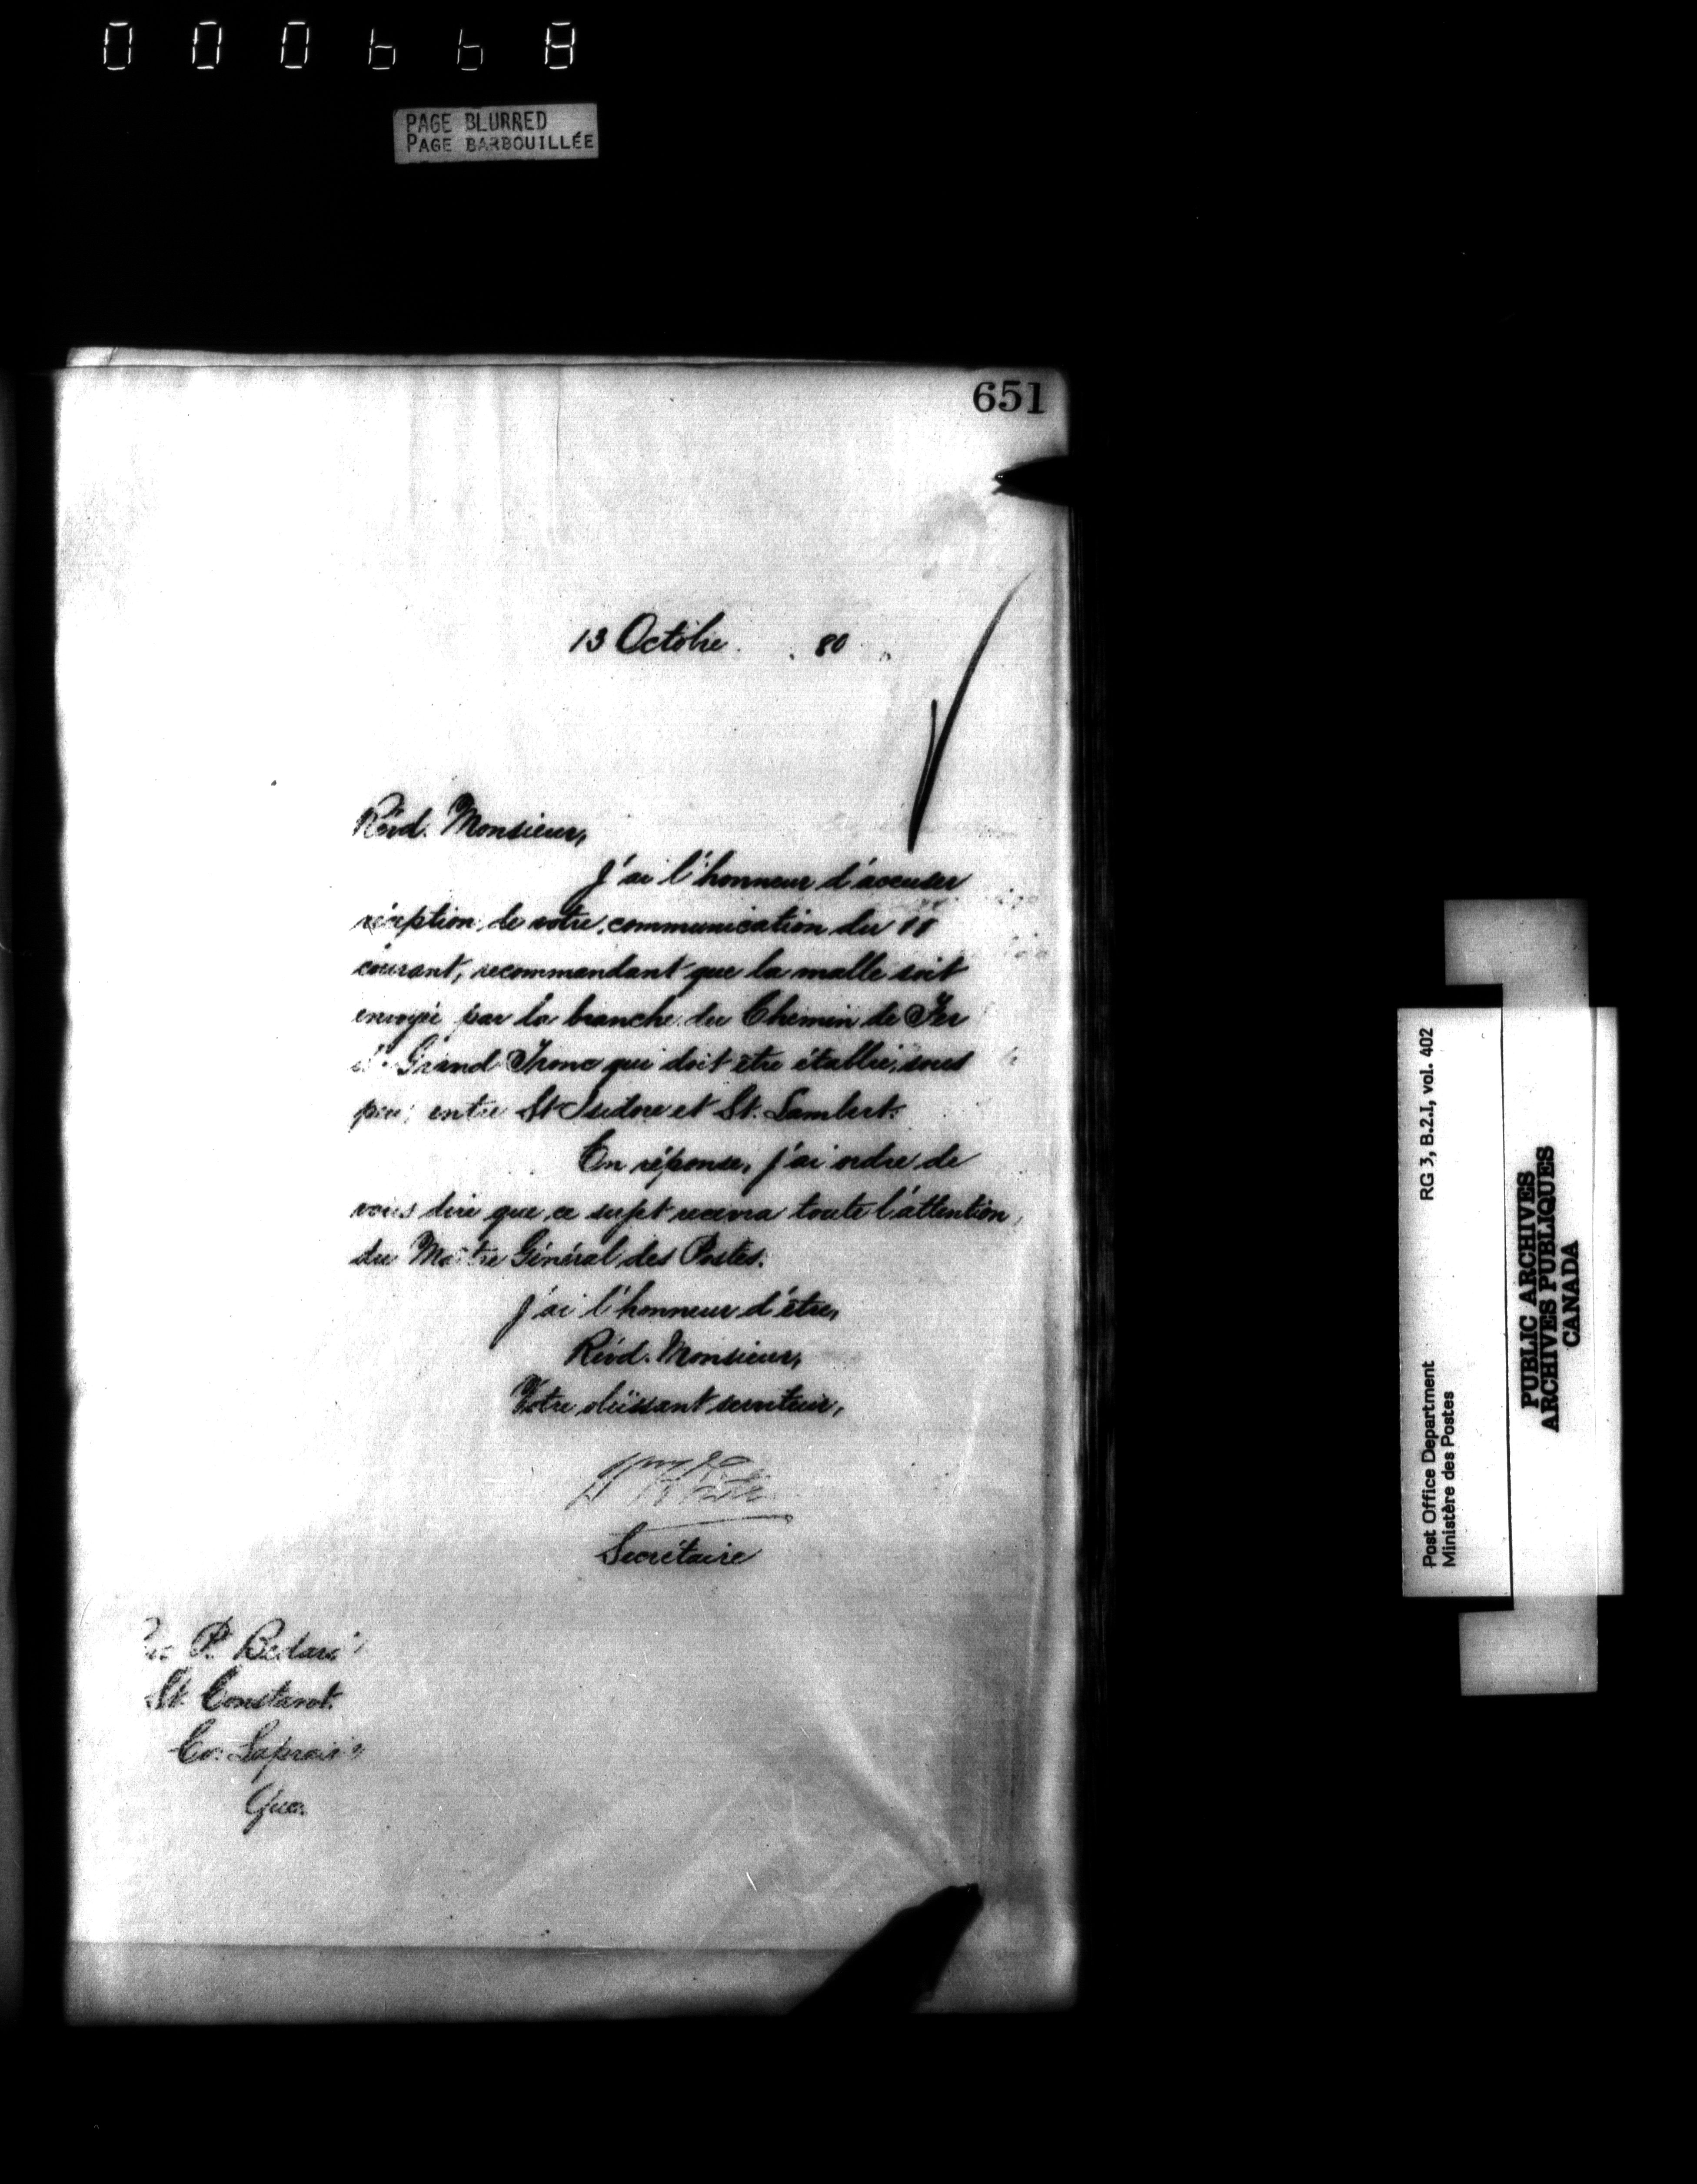 000668
PAGE BLURRED
PAGE BARBOUILLÉE
651
13 Octobre 80
Révd. Monsieur,
J'ai l'honneur d'accuser
réception de votre communication du 11
courant, recommandant que la malle soit
envoyée par la branche du Chemin de Fer
du Grand Tronc qui doit être établie, sous
peu, entre St Isidore et St. Lambert.
En réponse, j'ai ordre de
vous dire que ce sujet recevra toute l'attention
du Maître Général des Postes.
J'ai l'honneur d'être,
Révd. Monsieur,
Votre obéissant serviteur,
Secrétaire
P. Bedard
St. Constant
Co: Laprairie
Que.
Post Office Department RG 3, B.2.I, vol. 402
Ministère des Postes
PUBLIC ARCHIVES
ARCHIVES PUBLIQUES
CANADA